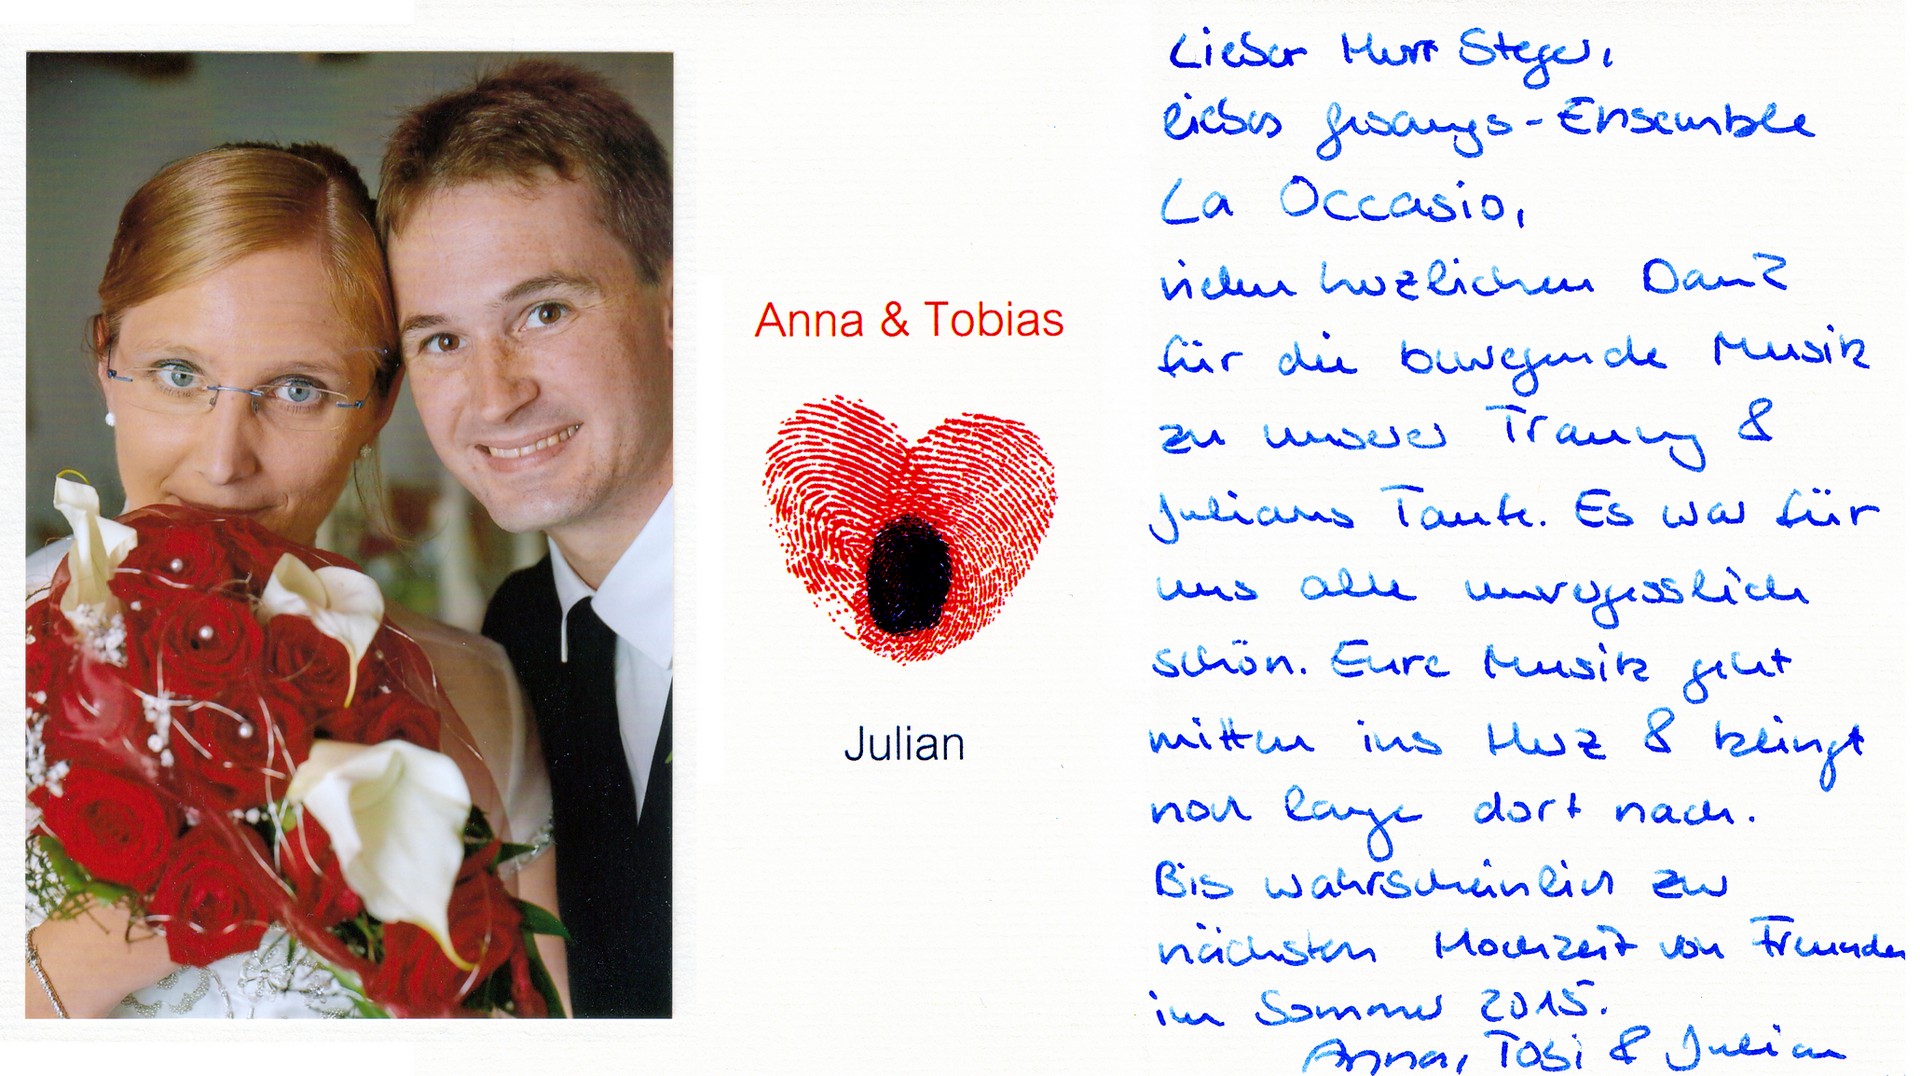 Anna & Tobias
Julian
Lieber Herr Steger,
liebes Gesangs-Ensemble
La Occasio,
vielen herzlichen Dank
für die bewegende Musik
zu unserer Trauung &
Julians Taufe. Es war für
uns alle unvergesslich
schön. Eure Musik geht
mitten ins Herz & klingt
noch lange dort nach.
Bis wahrscheinlich zur
nächsten Hochzeit von Freunden
im Sommer 2015.
Anna, Tobi & Julian